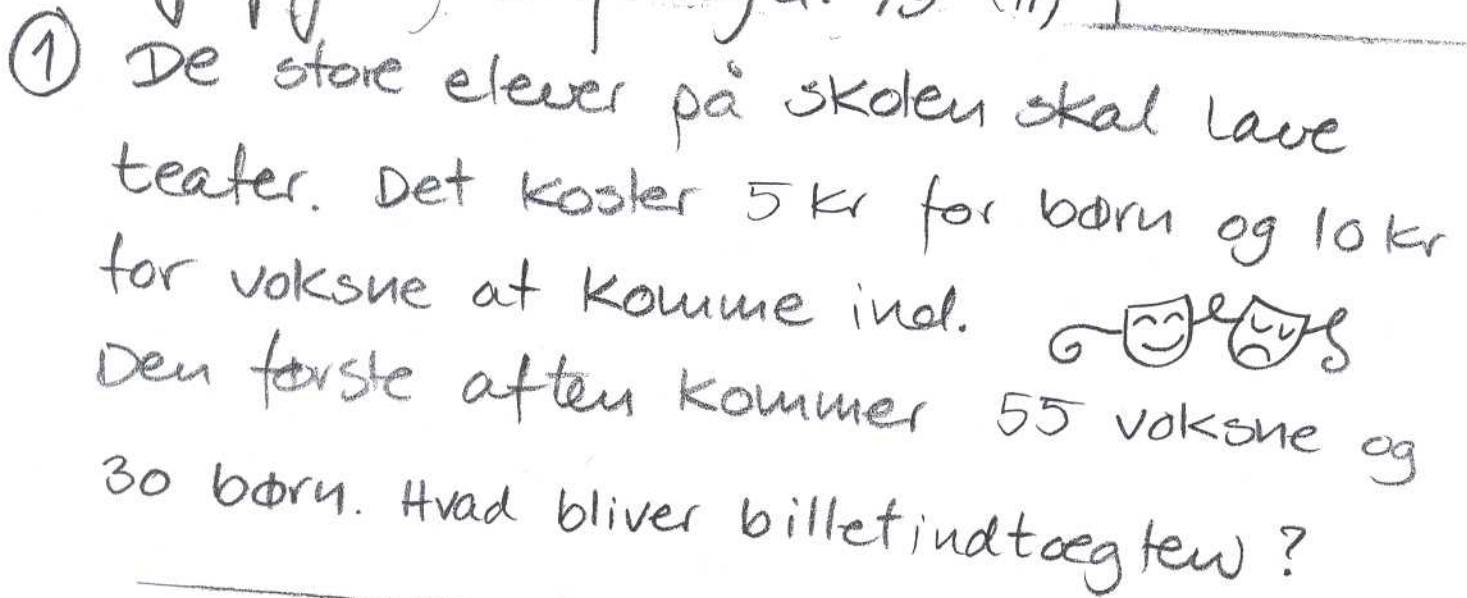 ① De store elever på skolen skal lave
teater. Det koster 5 kr for børn og 10 kr
for voksne at komme ind.
Den første aften kommer 55 voksne og
30 børn. Hvad bliver billetindtægten?